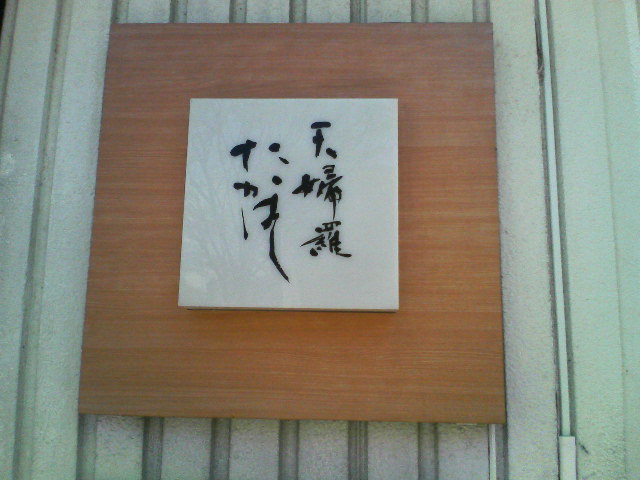 天婦羅
たかはし